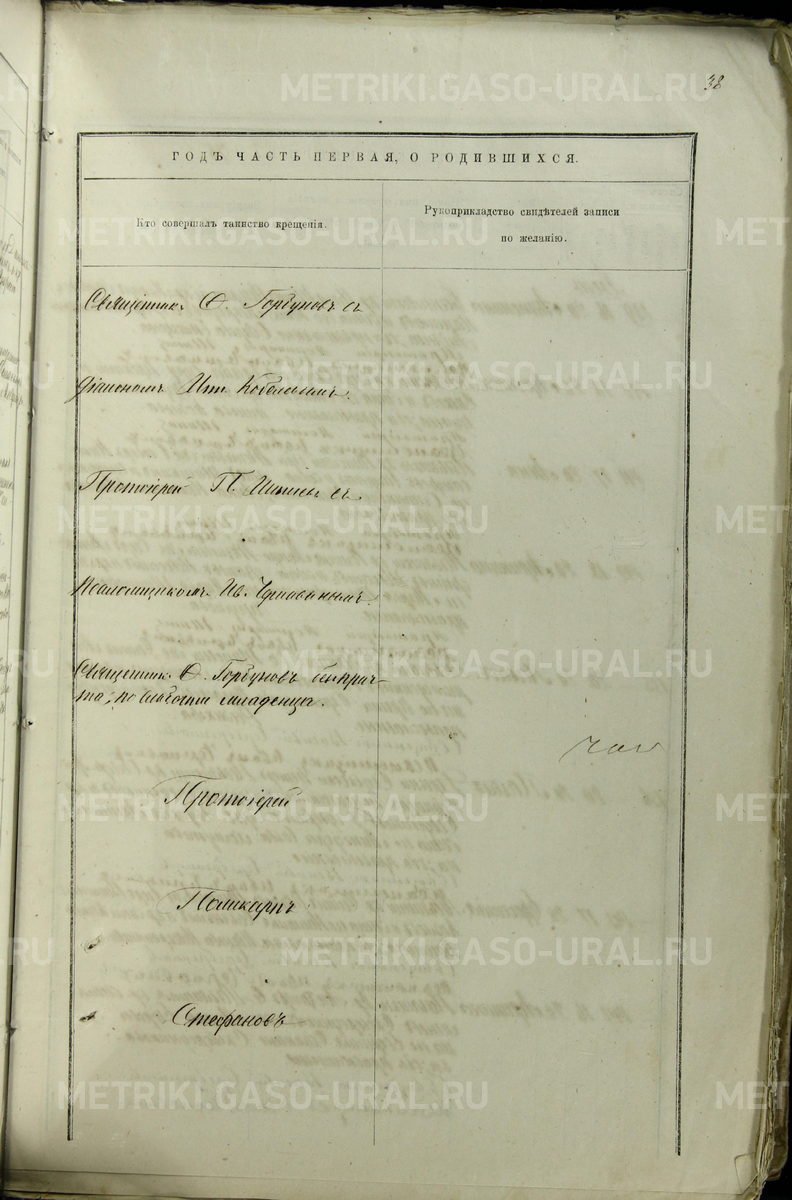 38
ГОДЪ ЧАСТЬ ПЕРВАЯ, О РОДИВШИХСЯ.
Кто совершалъ таинство крещенія.
Рукоприкладство свидѣтелей записи
по желанію.
Священник. Ѳ. Горбуновъ съ
Діакономъ
Протоіерей П. съ
Псаломщикомъ Ив.
Священник. Ѳ. Горбуновъ без прич-
та, по слабости младенца.
Протоіерей
Поликарпъ
Стефановъ
METRIKI.GASO-URAL.RU